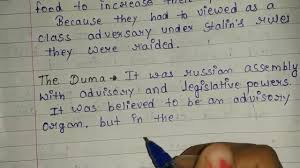 food to increase their
Because they had to viewed as a
class adversary under Stalin's rules
they were raided.
The Duma → It was russian assembly
with advisory and legislative powers.
It was believed to be an advisory
organ. but in the